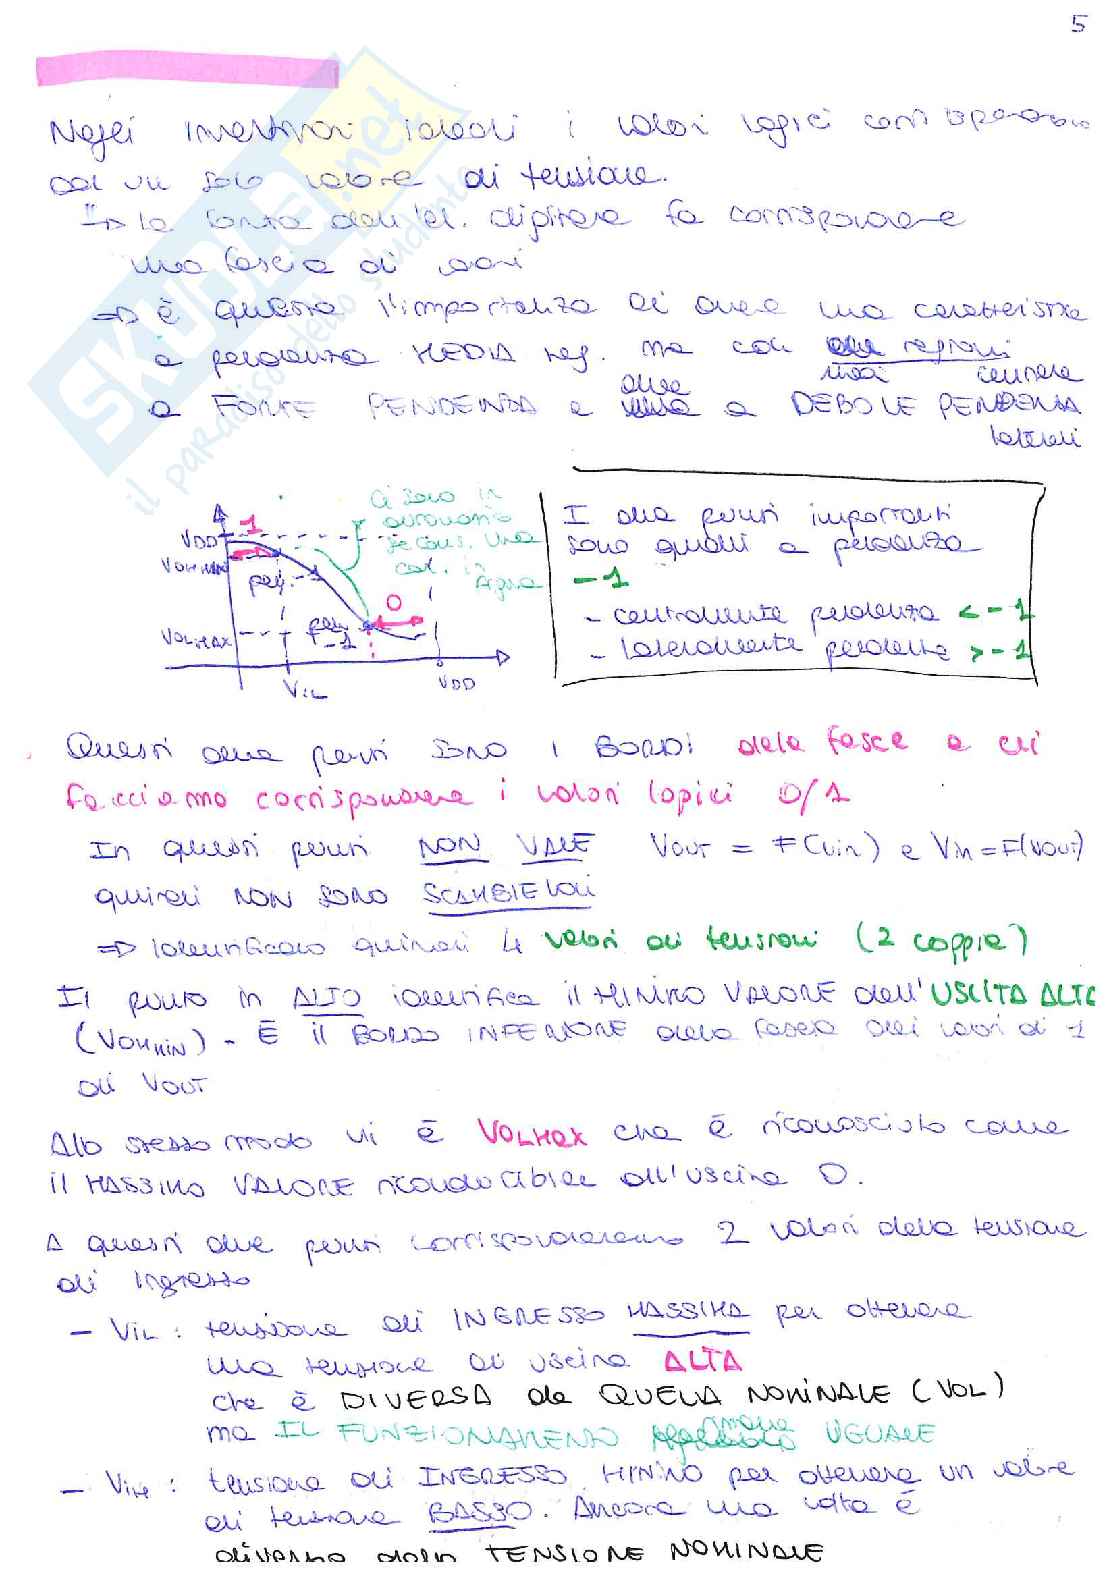 5
Negli invertitori ideali i valori logici corrispondono
ad un solo valore di tensione.
=> la forza dell'el. digitale fa corrispondere
una fascia di valori
=> è questa l'importanza di avere una caratteristica
a pendenza MEDIA neg. ma con regioni
una centrale
a FORTE PENDENZA e due a DEBOLE PENDENZA
laterali
SKUOLA.net
il paradiso dello studente
Ci sono in
VDD
1
VOHMIN
pen. -1
0
VOLMAX
pen
-1
VIL
VDD
I due punti importanti
sono quelli a pendenza
-1
- centralmente pendenza < -1
- lateralmente pendenza > -1
Questi due punti sono i BORDI delle fasce a cui
facciamo corrispondere i valori logici 0/1
In questi punti NON VALE VOUT = F(Vin) e Vin = F(VOUT)
quindi NON SONO SCAMBIEVOLI
=> Identificano quindi 4 valori di tensioni (2 coppie)
Il punto in ALTO identifica il MINIMO VALORE dell'USCITA ALTA
(VOHMIN) - È il BORDO INFERIORE della fascia dei valori di 1
di VOUT
Allo stesso modo vi è VOLMAX che è riconosciuto come
il MASSIMO VALORE riconducibile all'uscita 0.
A questi due punti corrisponderanno 2 valori della tensione
di ingresso
- VIL : tensione di INGRESSO MASSIMA per ottenere
una tensione di uscita ALTA
che è DIVERSA da QUELLA NOMINALE (VOL)
ma IL FUNZIONAMENTO rimane UGUALE
- VIH : tensione di INGRESSO MINIMO per ottenere un valore
di tensione BASSO. Ancora una volta è
diverso dalla TENSIONE NOMINALE